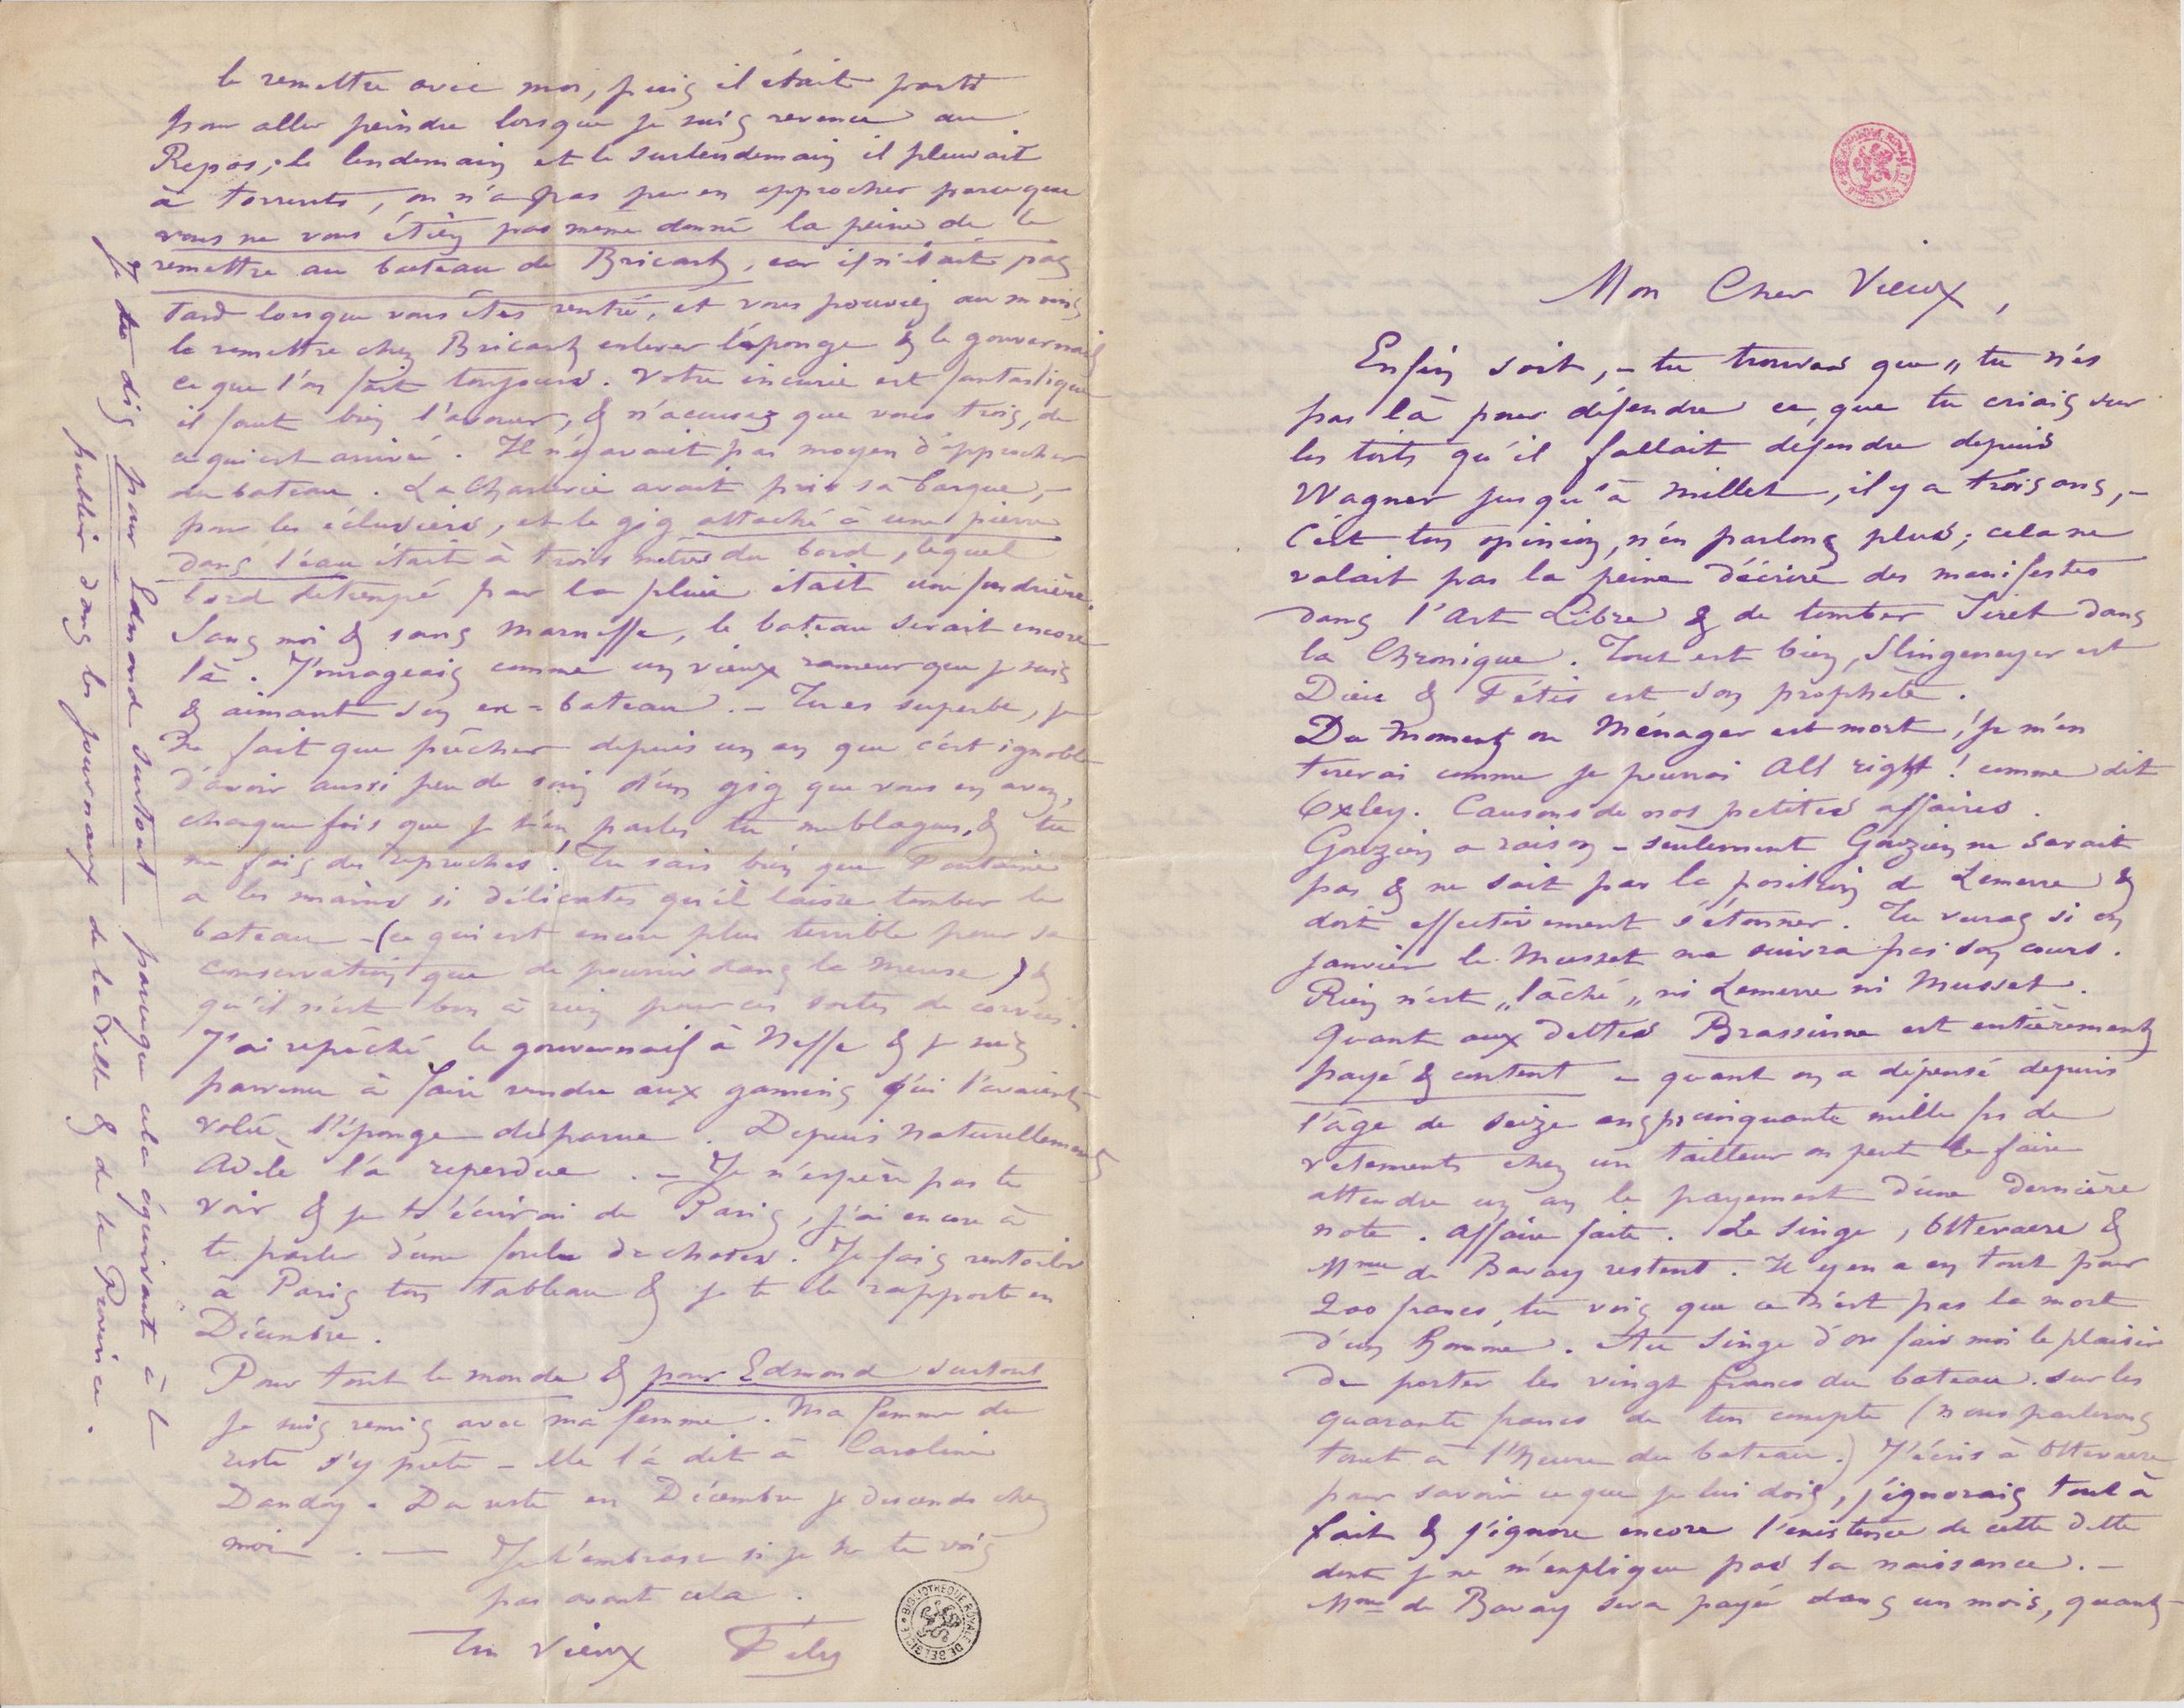 Mon Cher Vieux,
Enfin soit, – tu trouves que „ tu n'es
pas là pour défendre ce que tu criais sur
les toits qu'il fallait défendre depuis
Wagner jusqu'à Millet, il y a trois ans, –
C'est ton opinion, n'en parlons plus; cela ne
valait pas la peine d'écrire des manifestes
dans l'Art Libre & de tomber Siret dans
la Chronique. Tout est bien, Slingeneyer est
Dieu & Fétis est son prophète.
Du moment où Ménager est mort, je m'en
tirerai comme je pourrai All right ! comme dit
Oxley. Causons de nos petites affaires.
Gouzien a raison – seulement Gouzien ne savait
pas & ne sait pas la position de Lemerre &
doit effectivement s'étonner. Tu verras si en
janvier le Musset ne suivra pas son cours.
Rien n'est „ lâché „ ni Lemerre ni Musset.
Quant aux dettes Brassinne est entièrement
payé & content – quant on a dépensé depuis
l'âge de seize ans cinquante mille frs de
vêtements chez un tailleur on peut le faire
attendre un an le payement d'une dernière
note. Affaire faite. Le Singe, Ottevaere &
Mme de Bavay restent. Il y en a en tout pour
200 francs, tu vois que ce n'est pas la mort
d'un homme. Au Singe d'or fais moi le plaisir
de porter les vingt francs du bateau. sur les
quarante francs de ton compte (nous parlerons
tout à l'heure du bateau.) J'écris à Ottevaere
pour savoir ce que je lui dois, j'ignorais tout à
fait & j'ignore encore l'existence de cette dette
dont je ne m'explique pas la naissance. –
Mme de Bavay sera payée dans un mois, quant
le remettre avec moi, puis il était parti
pour aller peindre lorsque je suis revenu au
Repos; le lendemain et le surlendemain il pleuvait
à torrents, on n'a pas pu en approcher parceque
vous ne vous étiez pas même donné la peine de le
remettre au bateau de Bricart, car il n'était pas
tard lorsque vous êtes rentré, et vous pouviez au moins
le remettre chez Bricart enlever l'éponge & le gouvernail
ce que l'on fait toujours. Votre incurie est fantastique
il faut bien l'avouer, & n'accusez que vous trois, de
ce qui est arrivé. Il n'y avait pas moyen d'approcher
du bateau. La Charlerie avait pris sa barque, –
pour les éclusiers, et le gig attaché à une pierre
dans l'eau était à trois mètres du bord, lequel
bord détrempé par la pluie était une fondrière.
Sans moi & sans Marneffe, le bateau serait encore
là. J'enrageais comme un vieux rameur que je suis
& aimant son ex-bateau. – Tu es superbe, je
ne fait que prêcher depuis un an que c'est ignoble
d'avoir aussi peu de soin d'un gig que vous en avez,
chaque fois que je t'en parles tu me blagues, & tu
me fais des reproches ! Tu sais bien que Fontaine
a les mains si délicates qu'il laisse tomber le
bateau – (ce qui est encore plus terrible pour sa
conservation que de pourrir dans la Meuse) &
qu'il n'est bon à rien pour ces sortes de corvées.
J'ai repêché le gouvernail à Neffe & je suis
parvenu à faire rendre aux gamins qui l'avaient
volé, l'éponge disparue. Depuis naturellement
Adèle l'a reperdue. – Je n'espère pas te
voir & je t'écrirai de Paris, j'ai encore à
te parler d'une foule de choses. Je fais rentoiler
à Paris ton tableau & je te le rapporte en
Décembre.
Pour tout le monde & pour Edmond surtout
je suis remis avec ma femme. Ma femme du
reste s'y prête – elle l'a dit à Caroline
Dandoy. Du reste en Décembre je descends chez
moi. — Je t'embrasse si je ne te vois
pas avant cela.
Ton Vieux Fély
Je te dis pour Edmond surtout parceque cela équivaut à le
publier dans les journaux de la Ville & de la Province.
BIBLIOTHEQUE ROYALE DE BELGIQUE